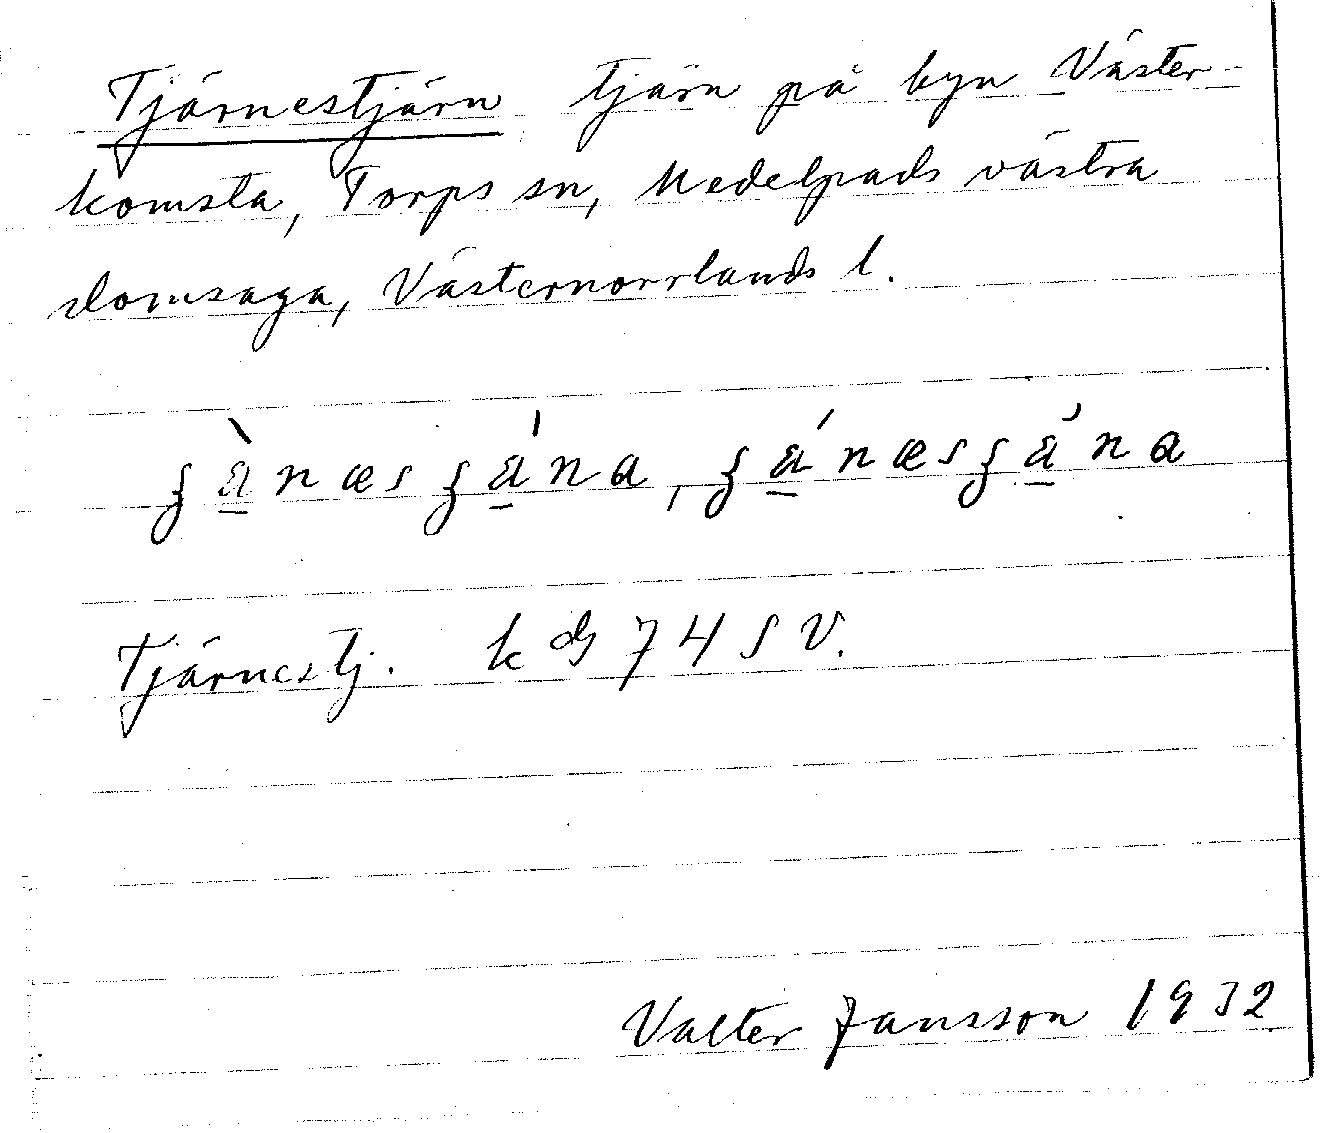 Tjärnestjärn tjärn på byn Väster-
komsta, Torps sn, Medelpads västra
domsaga, Västernorrlands l.
Tjärnestj. k dg 74 SV.
Valter Jansson 1932